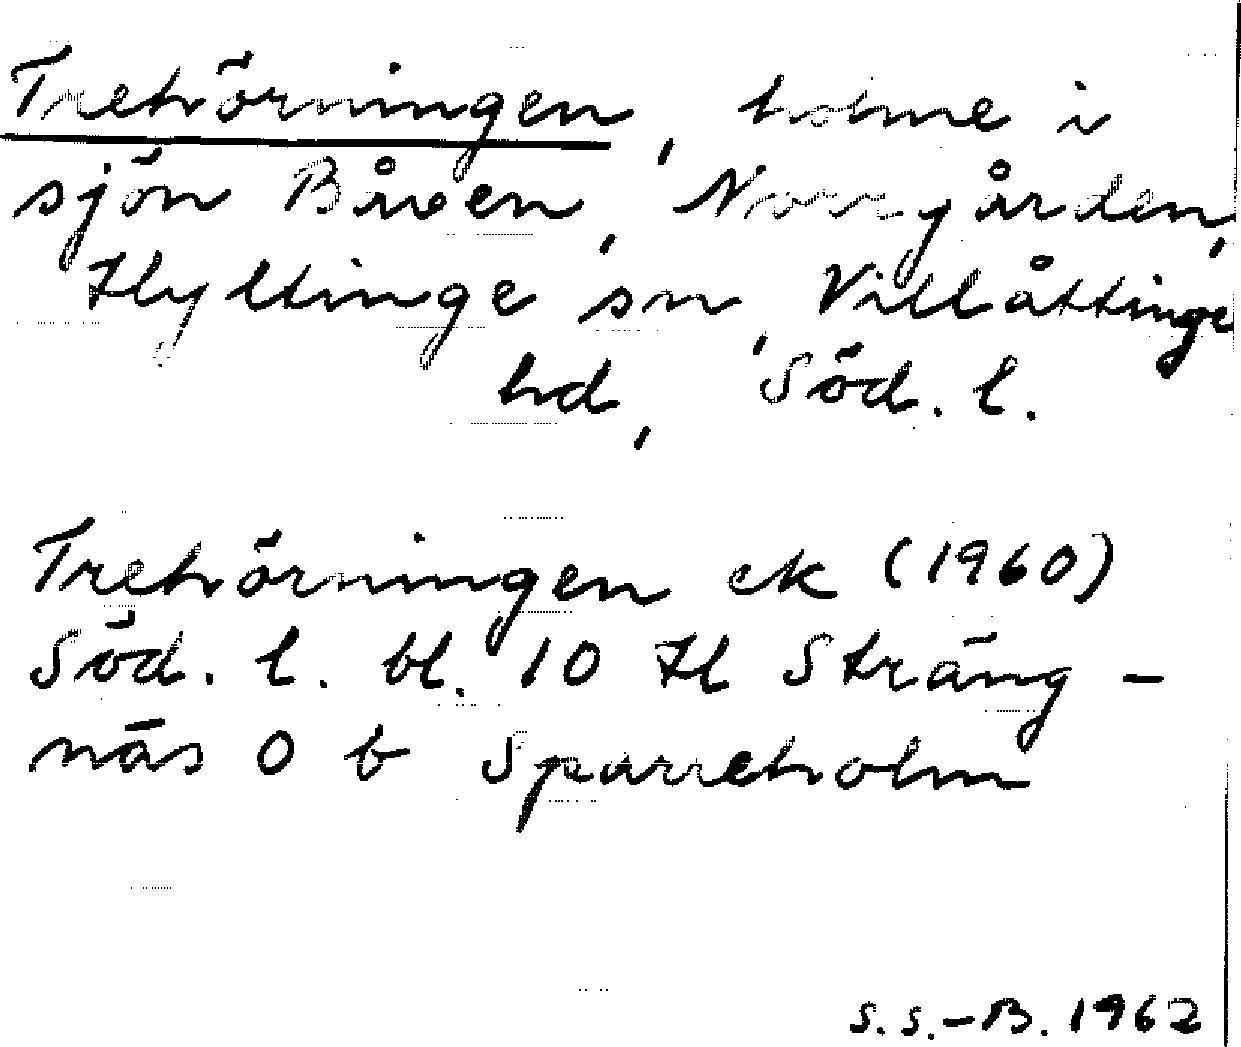 Trehörningen, holme i
sjön Båven, Norrgården,
Hyltinge sn, Villåttinge
hd, Söd. l.
Trehörningen ek (1960)
Söd. l. bl. 10 Hl Sträng-
näs O b Sparreholm
S.S.-B. 1962